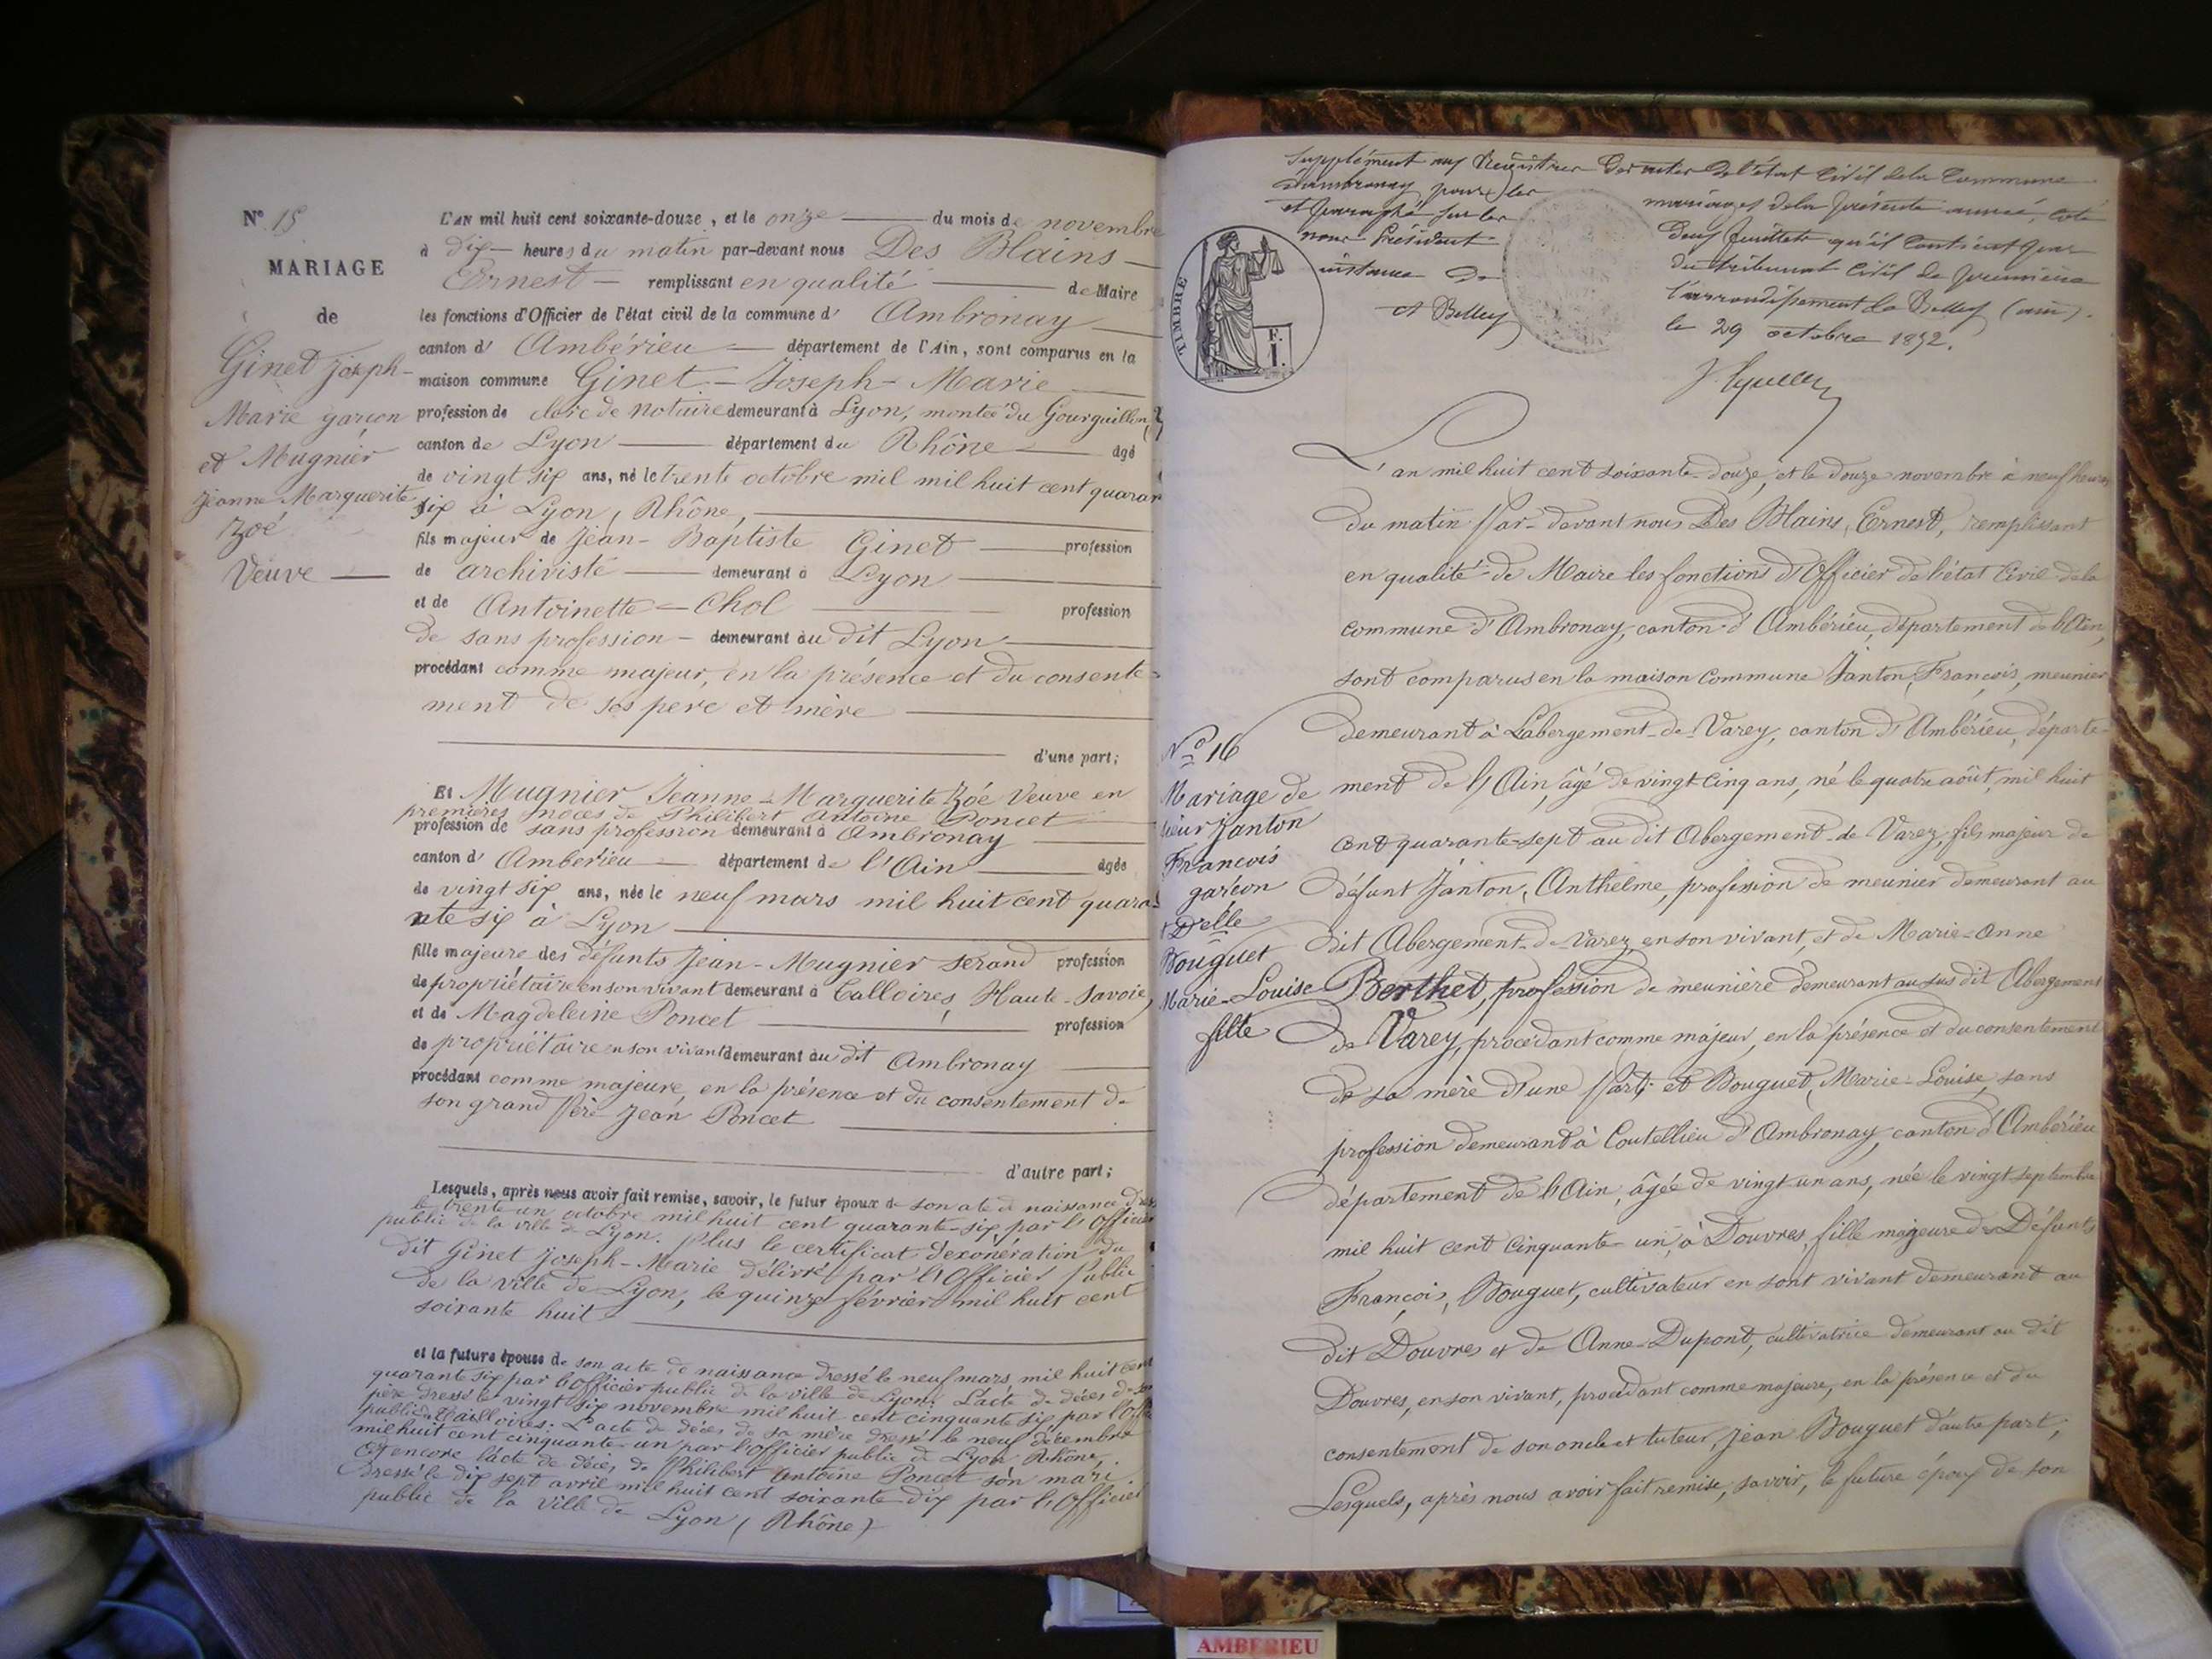 N° 15
MARIAGE
de
Ginet Joseph-
Marie garçon
et Mugnier
Jeanne Marguerite
Zoé
Veuve
L'AN mil huit cent soixante-douze, et le onze du mois de novembre
à dix heures du matin par-devant nous Des Blains
Ernest remplissant en qualité de Maire
les fonctions d'Officier de l'état civil de la commune d' Ambronay
canton d' Ambérieu département de l'Ain, sont comparus en la
maison commune Ginet - Joseph - Marie
profession de clerc de Notaire demeurant à Lyon, montée du Gourguillon,
canton de Lyon département du Rhône agé
de vingt six ans, né le trente octobre mil mil huit cent quaran
six à Lyon, Rhône,
fils majeur de Jean-Baptiste Ginet profession
de archiviste demeurant à Lyon
et de Antoinette - Chol profession
de sans profession - demeurant au dit Lyon
procédant comme majeur, en la présence et du consente-
ment de ses pere et mère
d'une part;
Et Mugnier Jeanne - Marguerite Zoé Veuve en
premières noces de Philibert Antoine Poncet
profession de sans profession demeurant à Ambronay
canton d' Amberieu département de l'Ain agée
de vingt six ans, née le neuf mars mil huit cent quara-
nte six à Lyon
fille majeure des défunts Jean - Mugnier Serand profession
de propriétaire en son vivant demeurant à Talloires, Haute-Savoie,
et de Magdeleine Poncet profession
de propriétaire en son vivant demeurant au dit Ambronay
procédant comme majeure, en la présence et du consentement de
son grand Père Jean Poncet
d'autre part;
Lesquels, après nous avoir fait remise, savoir, le futur époux de son ate de naissance
le trente un octobre mil huit cent quarante-six par l'Officier
public de la ville de Lyon. Plus le certificat d'exonération du
dit Ginet Joseph-Marie délivré par l'Officier Public
de la ville de Lyon, le quinze février mil huit cent
soixante huit
et la future épouse de son acte de naissance dressé le neuf mars mil huit cent
quarante six par l'officier public de la ville de Lyon. L'acte de décès de son
père dressé le vingt six novembre mil huit cent cinquante six par l'Officier
public de Talloires. L'acte de décès de sa mère dressé le neuf décembre
mil huit cent cinquante-un par l'officier public de Lyon, Rhône,
Et encore l'acte de décès de Philibert Antoine Poncet son mari
dressé le dix sept avril mil huit cent soixante dix par l'Officier
public de la ville de Lyon (Rhône)
Supplément aux Registres des actes de l'état civil de la Commune
d'Ambronay pour les mariages de la présente année, coté
et paraphé sur les deux feuillets qu'il contient par
nous Président du tribunal civil de première
instance de l'arrondissement de Belley (ain).
A Belley le 29 octobre 1872.
TIMBRE
F.
1.
L'an mil huit cent soixante-douze, et le douze novembre à neuf heures
du matin Par-devant nous Des Blains, Ernest, remplissant
en qualité de Maire les fonctions d'Officier de l'état Civil de la
commune d'Ambronay, canton d'Ambérieu, département de l'Ain,
sont comparus en la maison commune Janton, François, meunier
demeurant à Labergement-de-Varey, canton d'Ambérieu, départe-
ment de l'Ain, âgé de vingt-cinq ans, né le quatre août, mil huit
cent quarante-sept au dit Abergement-de Varey, fils majeur de
défunt Janton, Anthelme, profession de meunier demeurant au
dit Abergement-de Varey, en son vivant, et de Marie-Anne
Berthet, profession de meunière demeurant au sus dit Abergement
de Varey, procédant comme majeur, en la présence et du consentement
de sa mère d'une Part; et Bouguet, Marie-Louise, sans
profession demeurant à Coutellieu d'Ambronay, canton d'Ambérieu
département de l'Ain, âgée de vingt un ans, née le vingt septembre
mil huit cent cinquante-un, à Douvres, fille majeure de Défunts
François, Bouguet, cultivateur en sont vivant demeurant au
dit Douvres et de Anne-Dupont, cultivatrice demeurant au dit
Douvres, en son vivant, procédant comme majeure, en la présence et du
consentement de son oncle et tuteur, Jean Bouguet d'autre part;
Lesquels, après nous avoir fait remise, savoir, le future époux de son
N° 16
Mariage de
sieur Janton
François
garçon
et Delle
Bouguet
Marie-Louise
fille
AMBERIEU